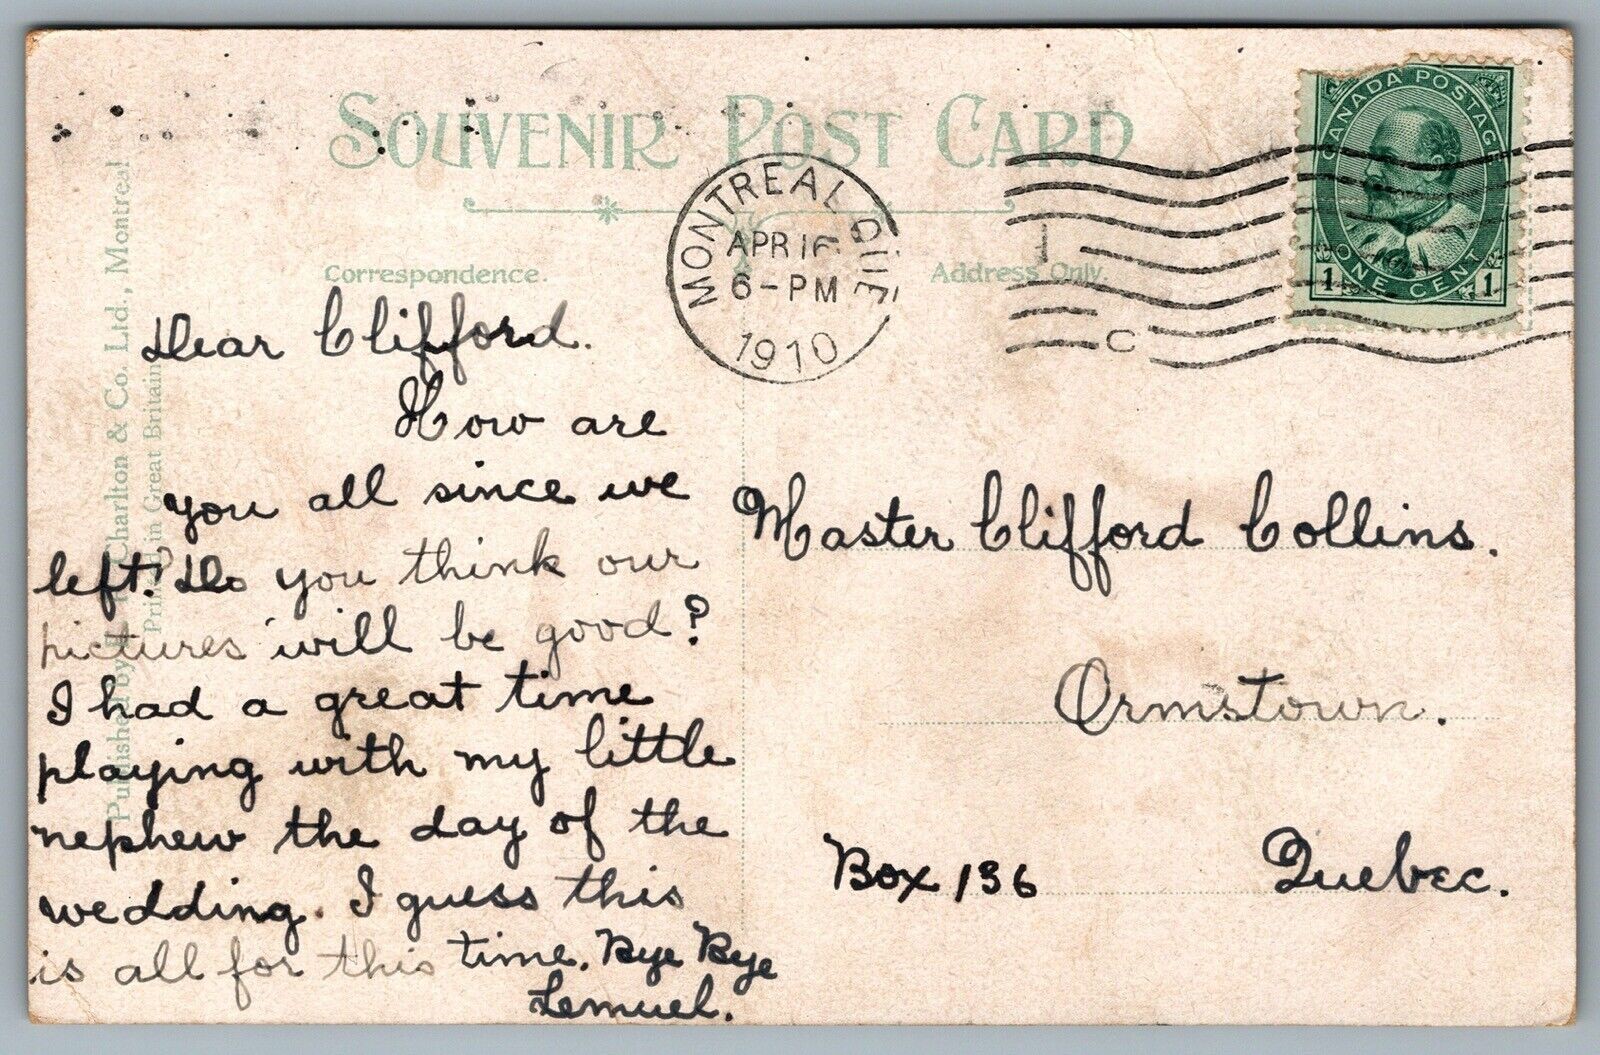 SOUVENIR POST CARD
Correspondence.
Address Only.
CANADA POSTAGE
1 ONE CENT 1
MONTREAL QUE
APR 16
6-PM
1910
C
Published by Charlton & Co. Ltd., Montreal
Printed in Great Britain
Dear Clifford.
How are
you all since we
left? Do you think our
pictures will be good?
I had a great time
playing with my little
nephew the day of the
wedding. I guess this
is all for this time. Bye Bye
Lemuel.
Master Clifford Collins.
Ormstown.
Box 136
Quebec.